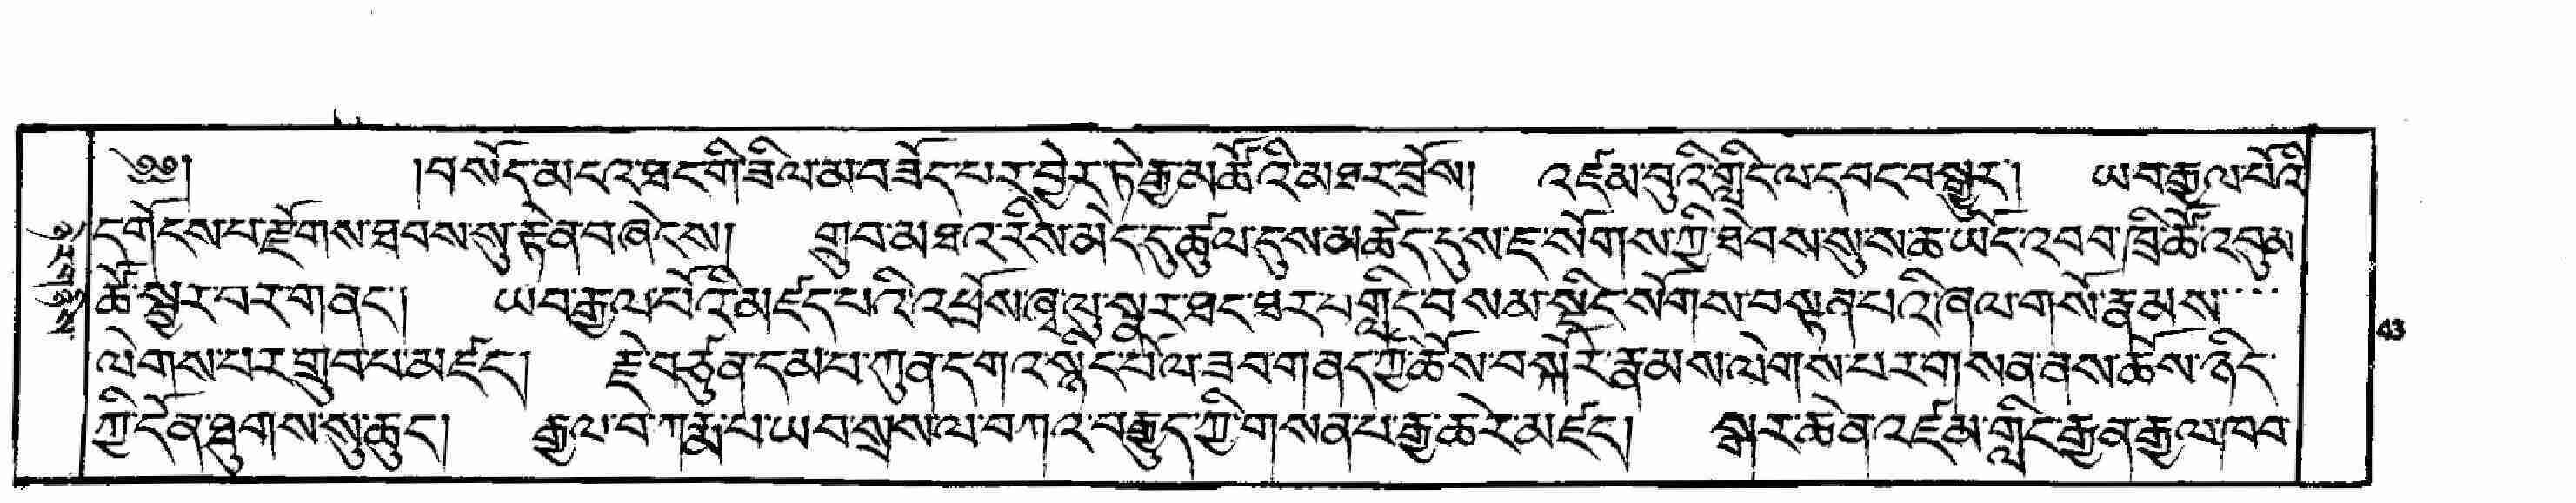 ༄༅། །བསོད་མངའ་ཐང་གི་ཟིལ་མ་བཟོད་པར་བྱེར་ཏེ་རྒྱ་མཚོའི་མཐར་བྲོས། འཛམ་བུའི་གླིང་ལ་དབང་བསྒྱུར། ཡབ་རྒྱལ་པོའི
དགོངས་པ་རྫོགས་ཐབས་སུ་རྟེན་བཞེངས། གྲུབ་མཐའ་རིས་མེད་དུ་ཚུལ་དུས་མཆོད་དུས་ཇ་སོགས་ཀྱི་ཐེབས་སུ་ས་ཆ་ཡོང་འབབ་ཁྲི་ཚོ་འབུམ
ཚོ་སྦྱར་བར་གནང་། ཡབ་རྒྱལ་པོའི་མཛད་པའི་འཕྲོས་ཞྭ་ལུ་སྣར་ཐང་ཐར་པ་གླིང་བསམ་སྡིང་སོགས་བསྟན་པའི་ཞིལ་གསོ་རྣམས་····
ལེགས་པར་གྲུབ་པ་མཛད། རྗེ་བཙུན་དམ་པ་ཀུན་དགའ་སྙིང་པོ་ལ་ཟབ་གནད་ཀྱི་ཆོས་བསྐོར་རྣམས་ལེགས་པར་གསན་ནས་ཆོས་ཉིད་
ཀྱི་དོན་ཐུགས་སུ་ཆུད། རྒྱལ་བ་ཀརྨ་པ་ཡབ་སྲས་ལ་བཀའ་བརྒྱུད་ཀྱི་གསན་པ་རྒྱ་ཆེར་མཛད། སྒར་ཆེན་འཛམ་གླིང་རྒྱན་རྒྱལ་ཁབ་
43